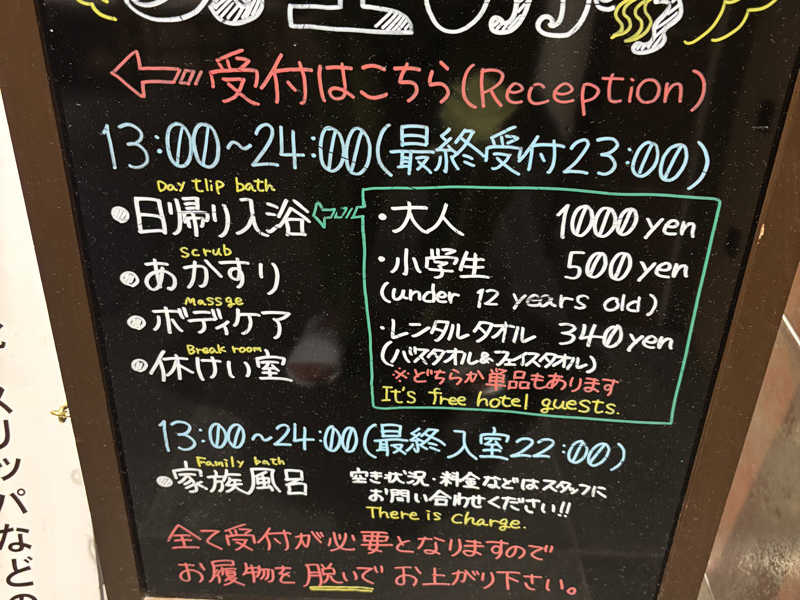 受付はこちら(Reception)
13:00～24:00(最終受付23:00)
Day tlip bath
●日帰り入浴
scrub
●あかすり
massge
●ボディケア
Break room
●休けい室
・大人 1000 yen
・小学生 500 yen
(under 12 years old)
・レンタルタオル 340 yen
(バスタオル&フェイスタオル)
※どちらか単品もあります
It's free hotel guests.
13:00～24:00(最終入室22:00)
Family bath
●家族風呂
空き状況・料金などはスタッフに
お問い合わせください!!
There is charge.
全て受付が必要となりますので
お履物を脱いでお上がり下さい。
スリッパなどの